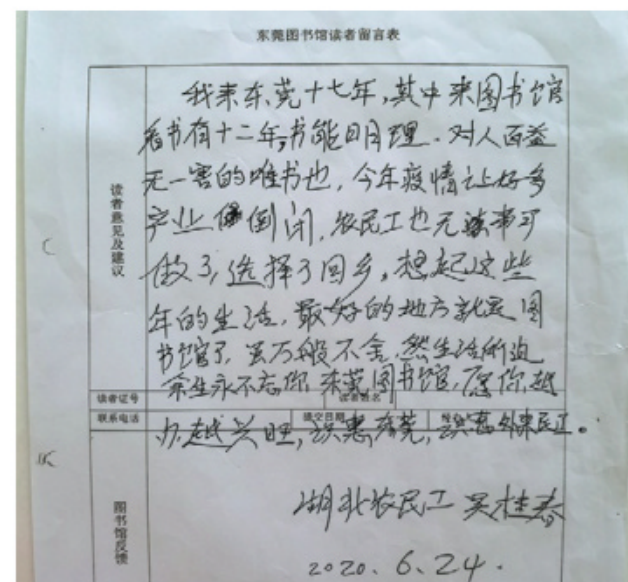 东莞图书馆读者留言表
读者意见及建议
我来东莞十七年,其中来图书馆
看书有十二年,书能明理.对人百益
无一害的唯书也,今年疫情让好多
产业倒闭,农民工也无事可
做了,选择了回乡,想起这些
年的生活,最好的地方就是图
书馆了,虽万般不舍,然生活所迫
余生永不忘你,东莞图书馆,愿你越
办越兴旺,识惠东莞,识惠外来民工。
读者证号
读者姓名
联系电话
提交日期
图书馆反馈
湖北农民工 吴桂春
2020.6.24.